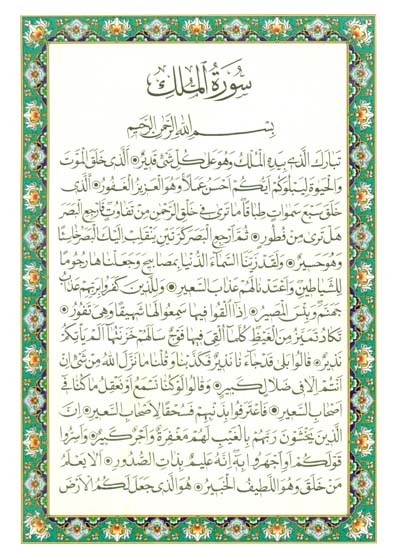 سورة الملك
بسم الله الرحمن الرحيم
تبارك الذي بيده الملك وهو على كل شئ قدير الذي خلق الموت
والحيوة ليبلوكم ايكم احسن عملا وهو العزيز الغفور الذي
خلق سبع سموات طباقا ما ترى في خلق الرحمن من تفاوت فارجع البصر
هل ترى من فطور ثم ارجع البصر كرتين ينقلب اليك البصر خاسئا
وهو حسير ولقد زينا السماء الدنيا بمصابيح وجعلناها رجوما
للشياطين واعتدنا لهم عذاب السعير وللذين كفروا بربهم عذاب
جهنم وبئس المصير اذا القوا فيها سمعوا لها شهيقا وهي تفور
تكاد تميز من الغيظ كلما القي فيها فوج سالهم خزنتها الم ياتكم
نذير قالوا بلى قد جاءنا نذير فكذبنا وقلنا ما نزل الله من شئ ان
انتم الا في ضلال كبير وقالوا لو كنا نسمع او نعقل ما كنا في
اصحاب السعير فاعترفوا بذنبهم فسحقا لاصحاب السعير ان
الذين يخشون ربهم بالغيب لهم مغفرة واجر كبير واسروا
قولكم او اجهروا به انه عليم بذات الصدور الا يعلم
من خلق وهو اللطيف الخبير هو الذي جعل لكم الارض